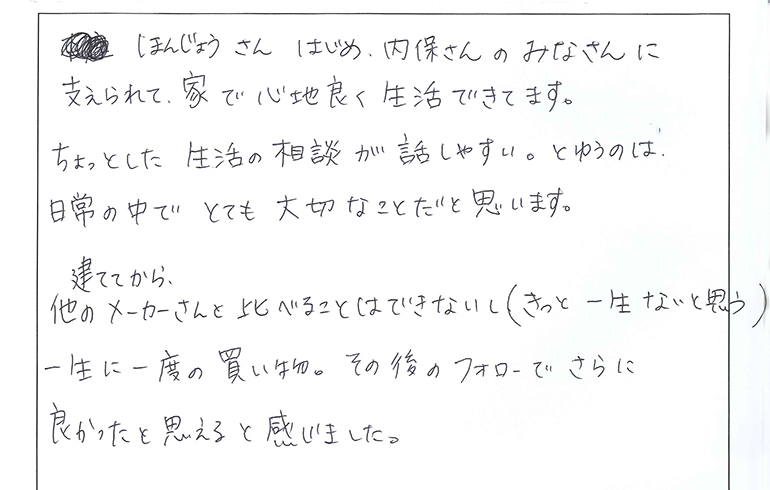 ほんじょうさん はじめ、内保さんのみなさんに
支えられて、家で心地良く生活できてます。
ちょっとした 生活の相談が話しやすい。とゆうのは、
日常の中で とても大切なことだと思います。
建ててから、
他のメーカーさんと比べることはできないし(きっと一生ないと思う)
一生に一度の買い物。その後のフォローでさらに
良かったと思えると感じました。